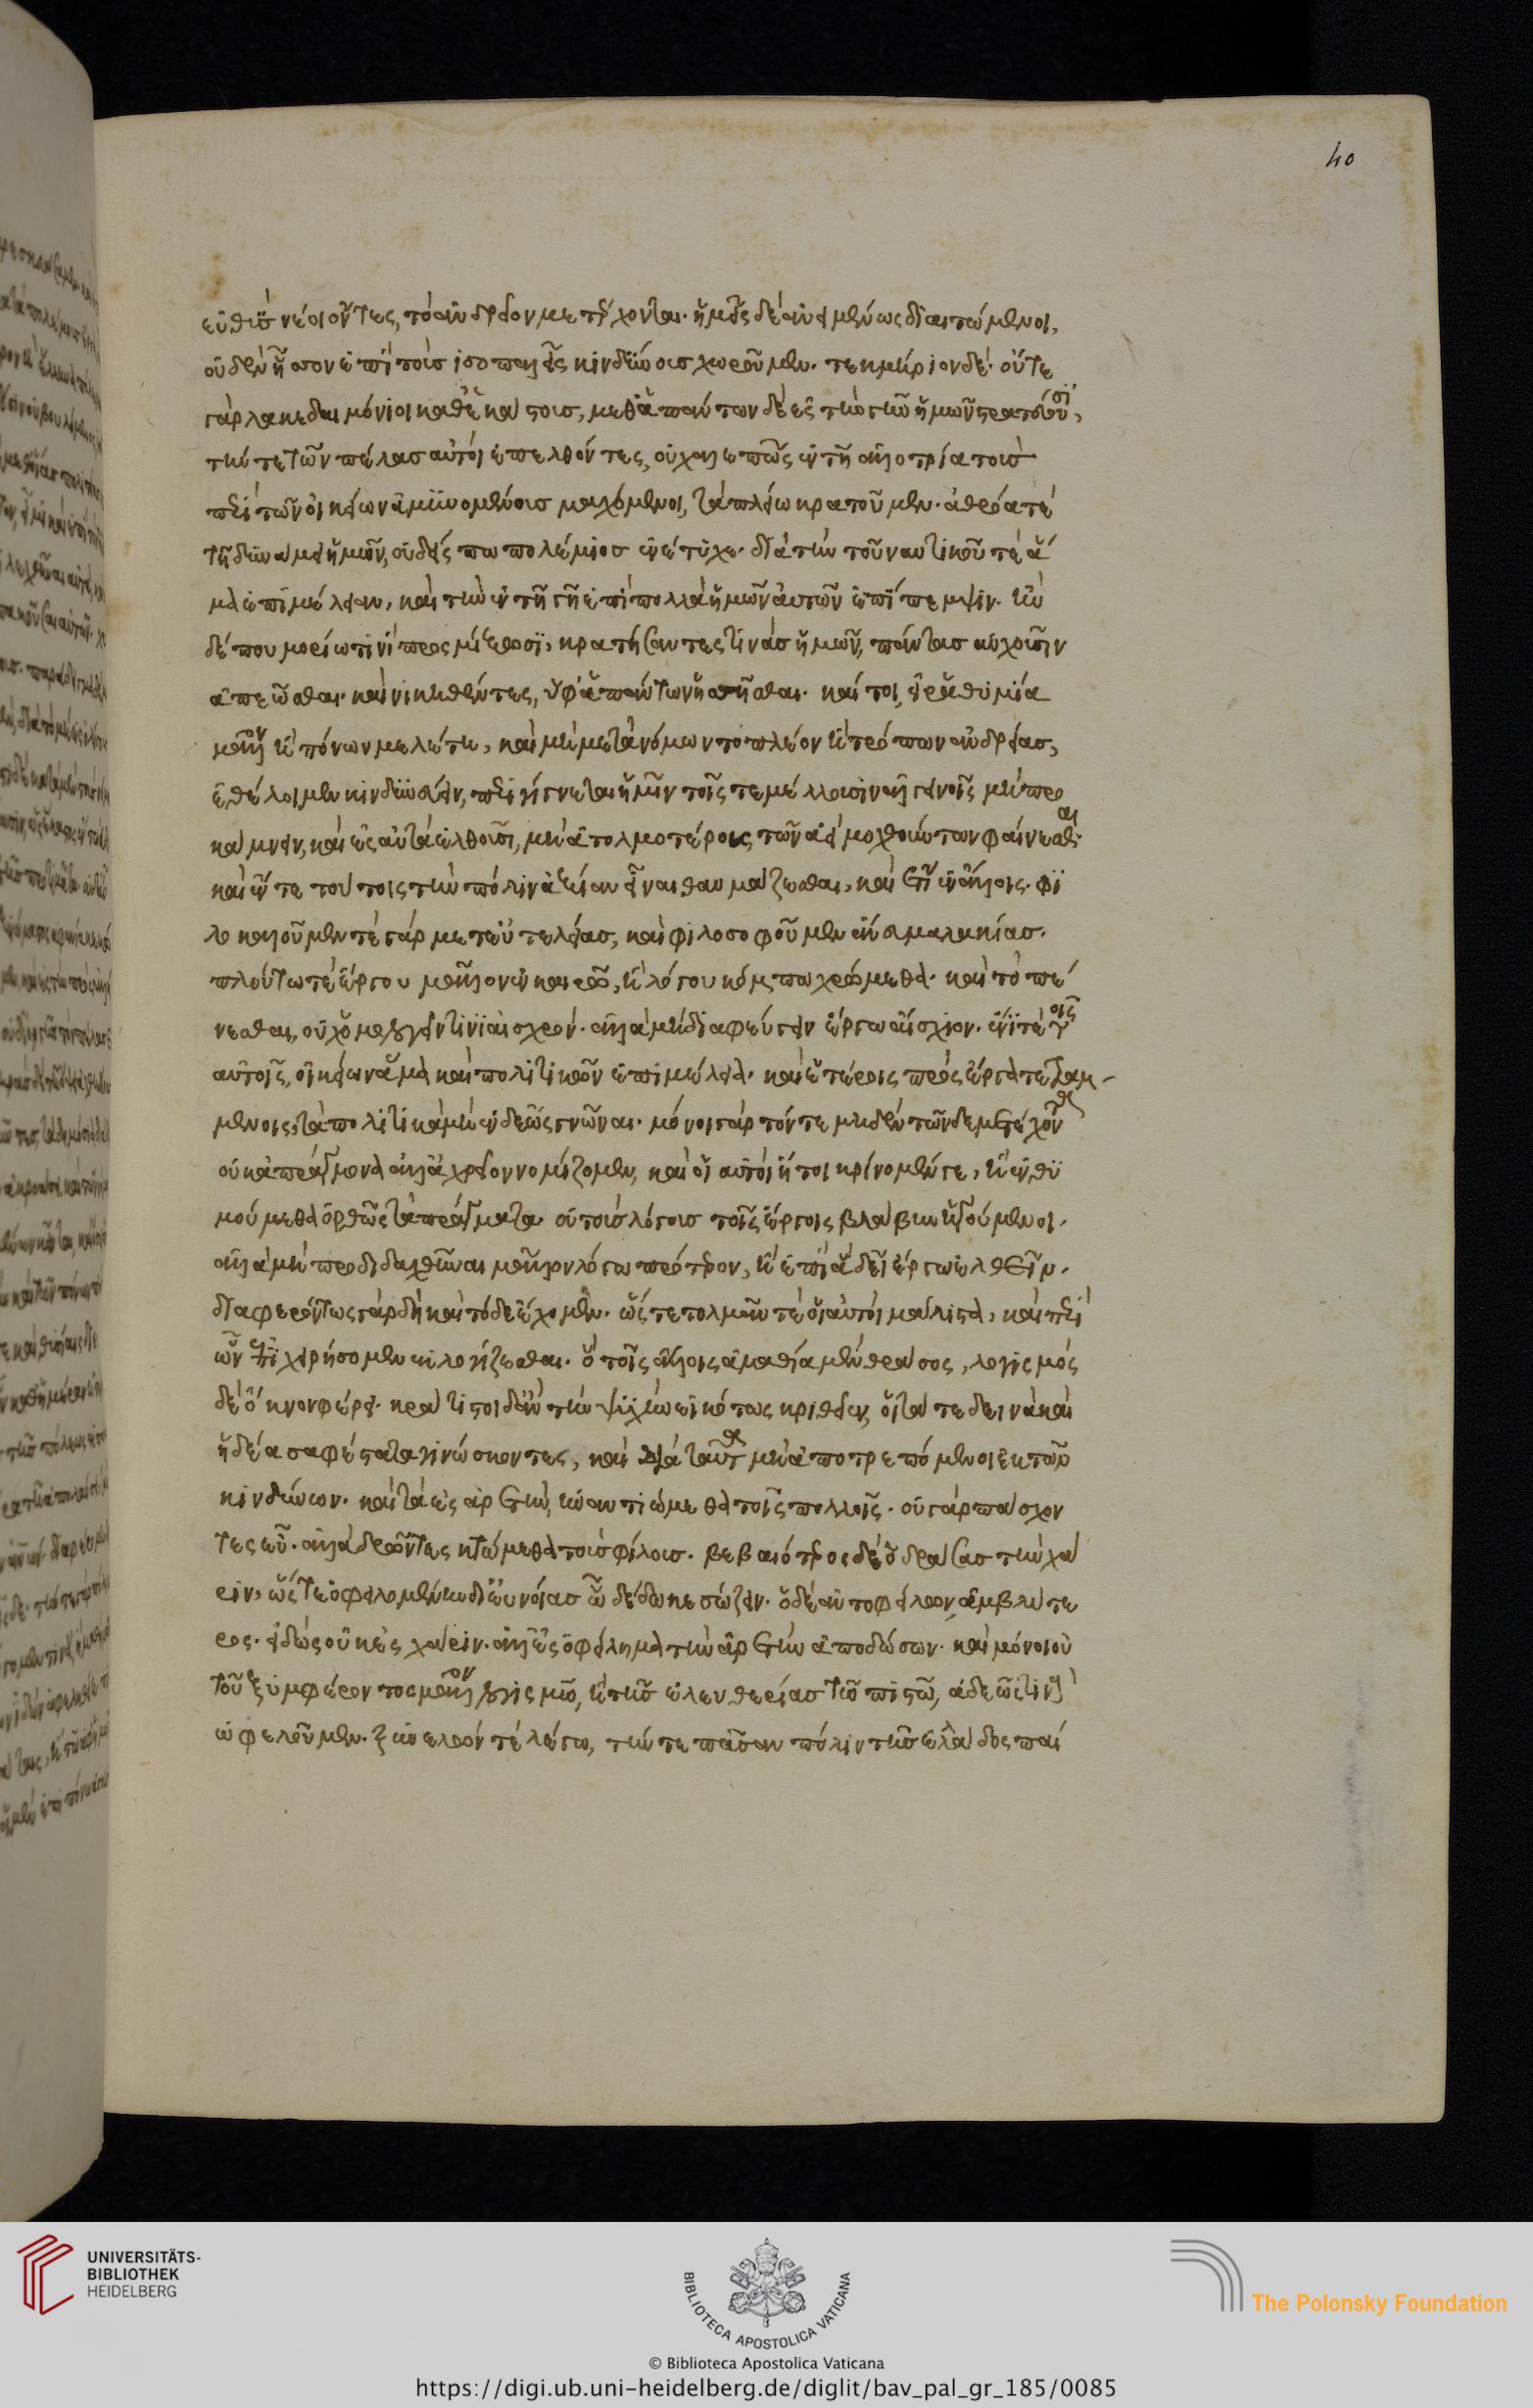 40
εὐθὺς νέοι ὄντες, τὸ ἀνδρεῖον μετέρχονται. ἡμεῖς δὲ ἀνειμένως διαιτώμενοι,
οὐδὲν ἧσσον ἐπὶ τοὺς ἰσοπαλεῖς κινδύνους χωροῦμεν. τεκμήριον δέ· οὔτε
γὰρ λακεδαιμόνιοι καθ' ἑκάστους, μεθ' ἁπάντων δὲ ἐς τὴν γῆν ἡμῶν στρατεύουσι,
τήν τε τῶν πέλας αὐτοὶ ἐπελθόντες, οὐ χαλεπῶς ἐν τῆ ἀλλοτρία τοὺς
περὶ τῶν οἰκείων ἀμυνομένους μαχόμενοι, τὰ πλείω κρατοῦμεν. ἀθρόα τε
τῆ δυνάμει ἡμῶν, οὐδείς πω πολέμιος ἐνέτυχε. διὰ τὴν τοῦ ναυτικοῦ τε ἅ
μα ἐπιμέλειαν, καὶ τὴν ἐν τῆ γῆ ἐπὶ πολλὰ ἡμῶν αὐτῶν ἐπίπεμψιν. ἢν
δέ που μορίω τινὶ προσμίξωσι, κρατήσαντες τινὰς ἡμῶν, πάντας αὐχοῦσιν
ἀπεῶσθαι. καὶ νικηθέντες, ὑφ' ἁπάντων ἡσσῆσθαι. καίτοι, εἰ ῥαθυμία
μᾶλλον ἢ πόνων μελέτη, καὶ μὴ μετὰ νόμων τὸ πλέον ἢ τρόπων ἀνδρείας,
ἐθέλοιμεν κινδυνεύειν, περιγίγνεται ἡμῖν τοῖς τε μέλλουσιν ἀλγεινοῖς μὴ προ
κάμνειν, καὶ ἐς αὐτὰ ἐλθοῦσι, μὴ ἀτολμοτέρους τῶν ἀεὶ μοχθούντων φαίνεσθαι.
καὶ ἔν τε τούτοις τὴν πόλιν ἀξίαν εἶναι θαυμάζεσθαι, καὶ ἔτι ἐν ἄλλοις. φι
λοκαλοῦμέν τε γὰρ μετ' εὐτελείας, καὶ φιλοσοφοῦμεν ἄνευ μαλακίας.
πλούτω τε ἔργου μᾶλλον ἐν καιρῶ, ἢ λόγου κόμπω χρώμεθα. καὶ τὸ πέ
νεσθαι, οὐχ ὁμολογεῖν τινὶ αἰσχρόν. ἀλλὰ μὴ διαφεύγειν ἔργω αἴσχιον. ἔνι τε τοῖς
αὐτοῖς, οἰκείων ἅμα καὶ πολιτικῶν ἐπιμέλεια. καὶ ἑτέροις πρὸς ἔργα τετραμ-
μένοις, τὰ πολιτικὰ μὴ ἐνδεῶς γνῶναι. μόνοι γὰρ τόν τε μηδὲν τῶνδε μετέχοντα
οὐκ ἀπράγμονα ἀλλ' ἀχρεῖον νομίζομεν, καὶ οἱ αὐτοὶ ἤτοι κρίνομέν γε, ἢ ἐνθυ
μούμεθα ὀρθῶς τὰ πράγματα. οὐ τοὺς λόγους τοῖς ἔργοις βλάβην ἡγούμενοι.
ἀλλὰ μὴ προδιδαχθῆναι μᾶλλον λόγω πρότερον, ἢ ἐπὶ ἃ δεῖ ἔργω ἐλθεῖν.
διαφερόντως γὰρ δὴ καὶ τόδε ἔχομεν. ὥστε τολμᾶν τε οἱ αὐτοὶ μάλιστα, καὶ περὶ
ὧν ἐπιχειρήσομεν ἐκλογίζεσθαι. ὃ τοῖς ἄλλοις ἀμαθία μὲν θράσος, λογισμὸς
δὲ ὄκνον φέρει. κράτιστοι δ' ἂν τὴν ψυχὴν εἰκότως κριθεῖεν, οἱ τά τε δεινὰ καὶ
ἡδέα σαφέστατα γινώσκοντες, καὶ διὰ ταῦτα μὴ ἀποτρεπόμενοι ἐκ τῶν
κινδύνων. καὶ τὰ ἐς ἀρετὴν, ἠναντιώμεθα τοῖς πολλοῖς. οὐ γὰρ πάσχον
τες εὖ. ἀλλὰ δρῶντες κτώμεθα τοὺς φίλους. βεβαιότερος δὲ ὁ δράσας τὴν χά
ριν, ὥστε ὀφειλομένην δι' εὐνοίας ὧ δέδωκε σώζειν. ὁ δὲ ἀντοφείλων ἀμβλύτε
ρος. εἰδὼς οὐκ ἐς χάριν. ἀλλ' ἐς ὀφείλημα τὴν ἀρετὴν ἀποδώσων. καὶ μόνοι οὐ
τοῦ ξυμφέροντος μᾶλλον λογισμῶ, ἢ τῆς ἐλευθερίας τῶ πιστῶ, ἀδεῶς τινὰ
ὠφελοῦμεν. ξυνελών τε λέγω, τήν τε πᾶσαν πόλιν τῆς ἑλλάδος παί
UNIVERSITÄTS-
BIBLIOTHEK
HEIDELBERG
BIBLIOTECA APOSTOLICA VATICANA
The Polonsky Foundation
© Biblioteca Apostolica Vaticana
https://digi.ub.uni-heidelberg.de/diglit/bav_pal_gr_185/0085